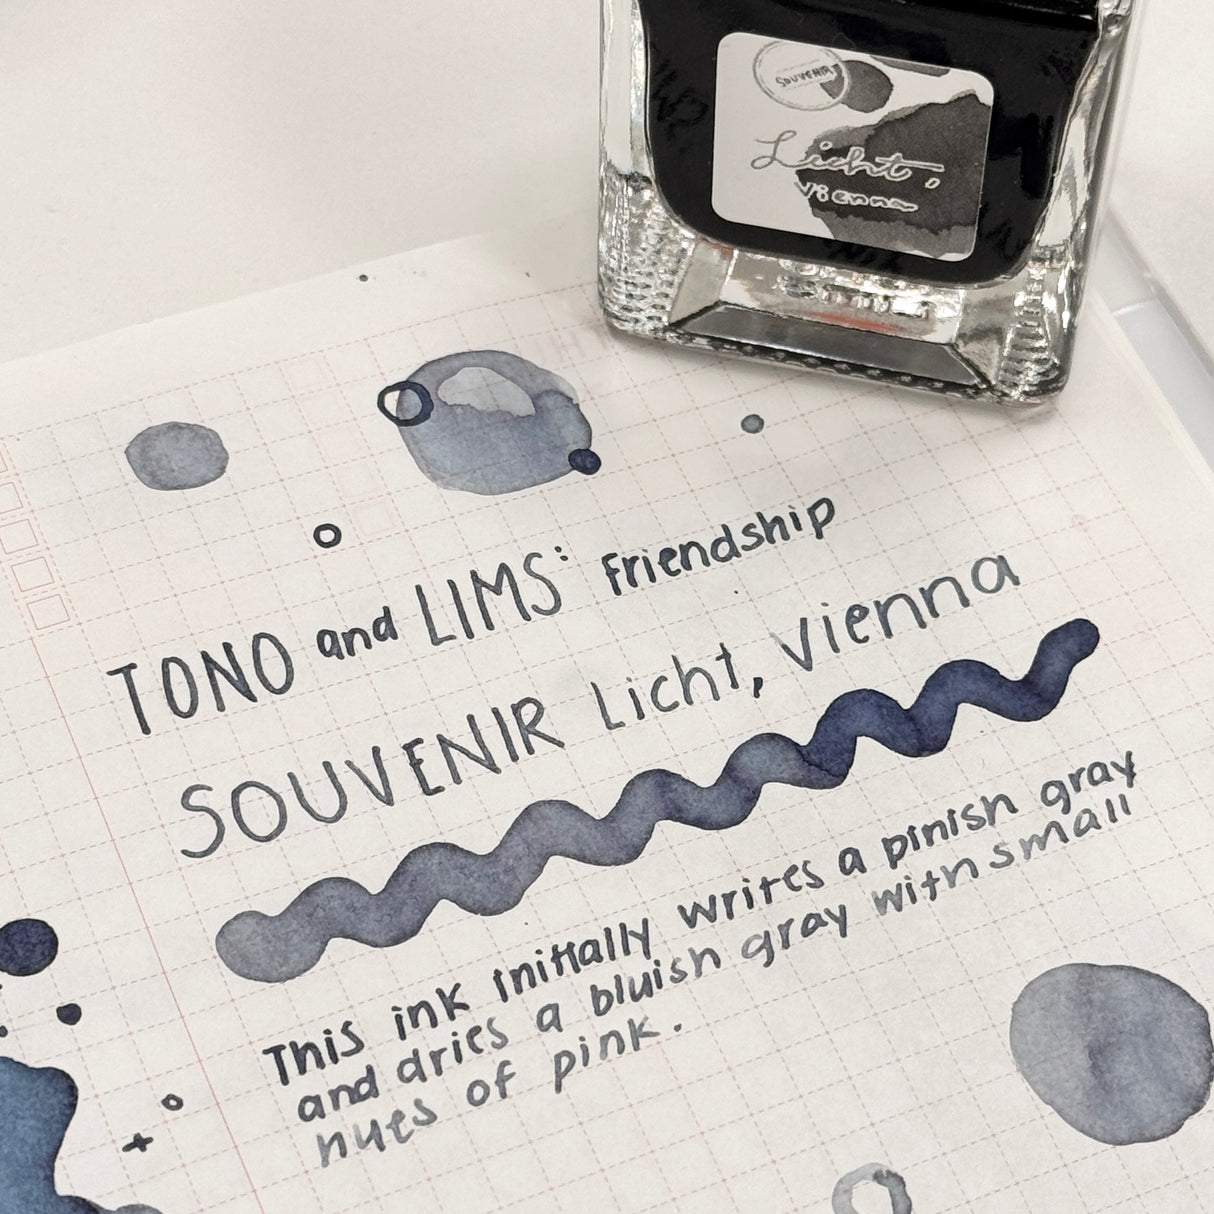 SOUVENIR
Licht,
Vienna
TONO and LIMS: Friendship
SOUVENIR Licht, Vienna
This ink initially writes a pinish gray
and dries a bluish gray with small
hues of pink.